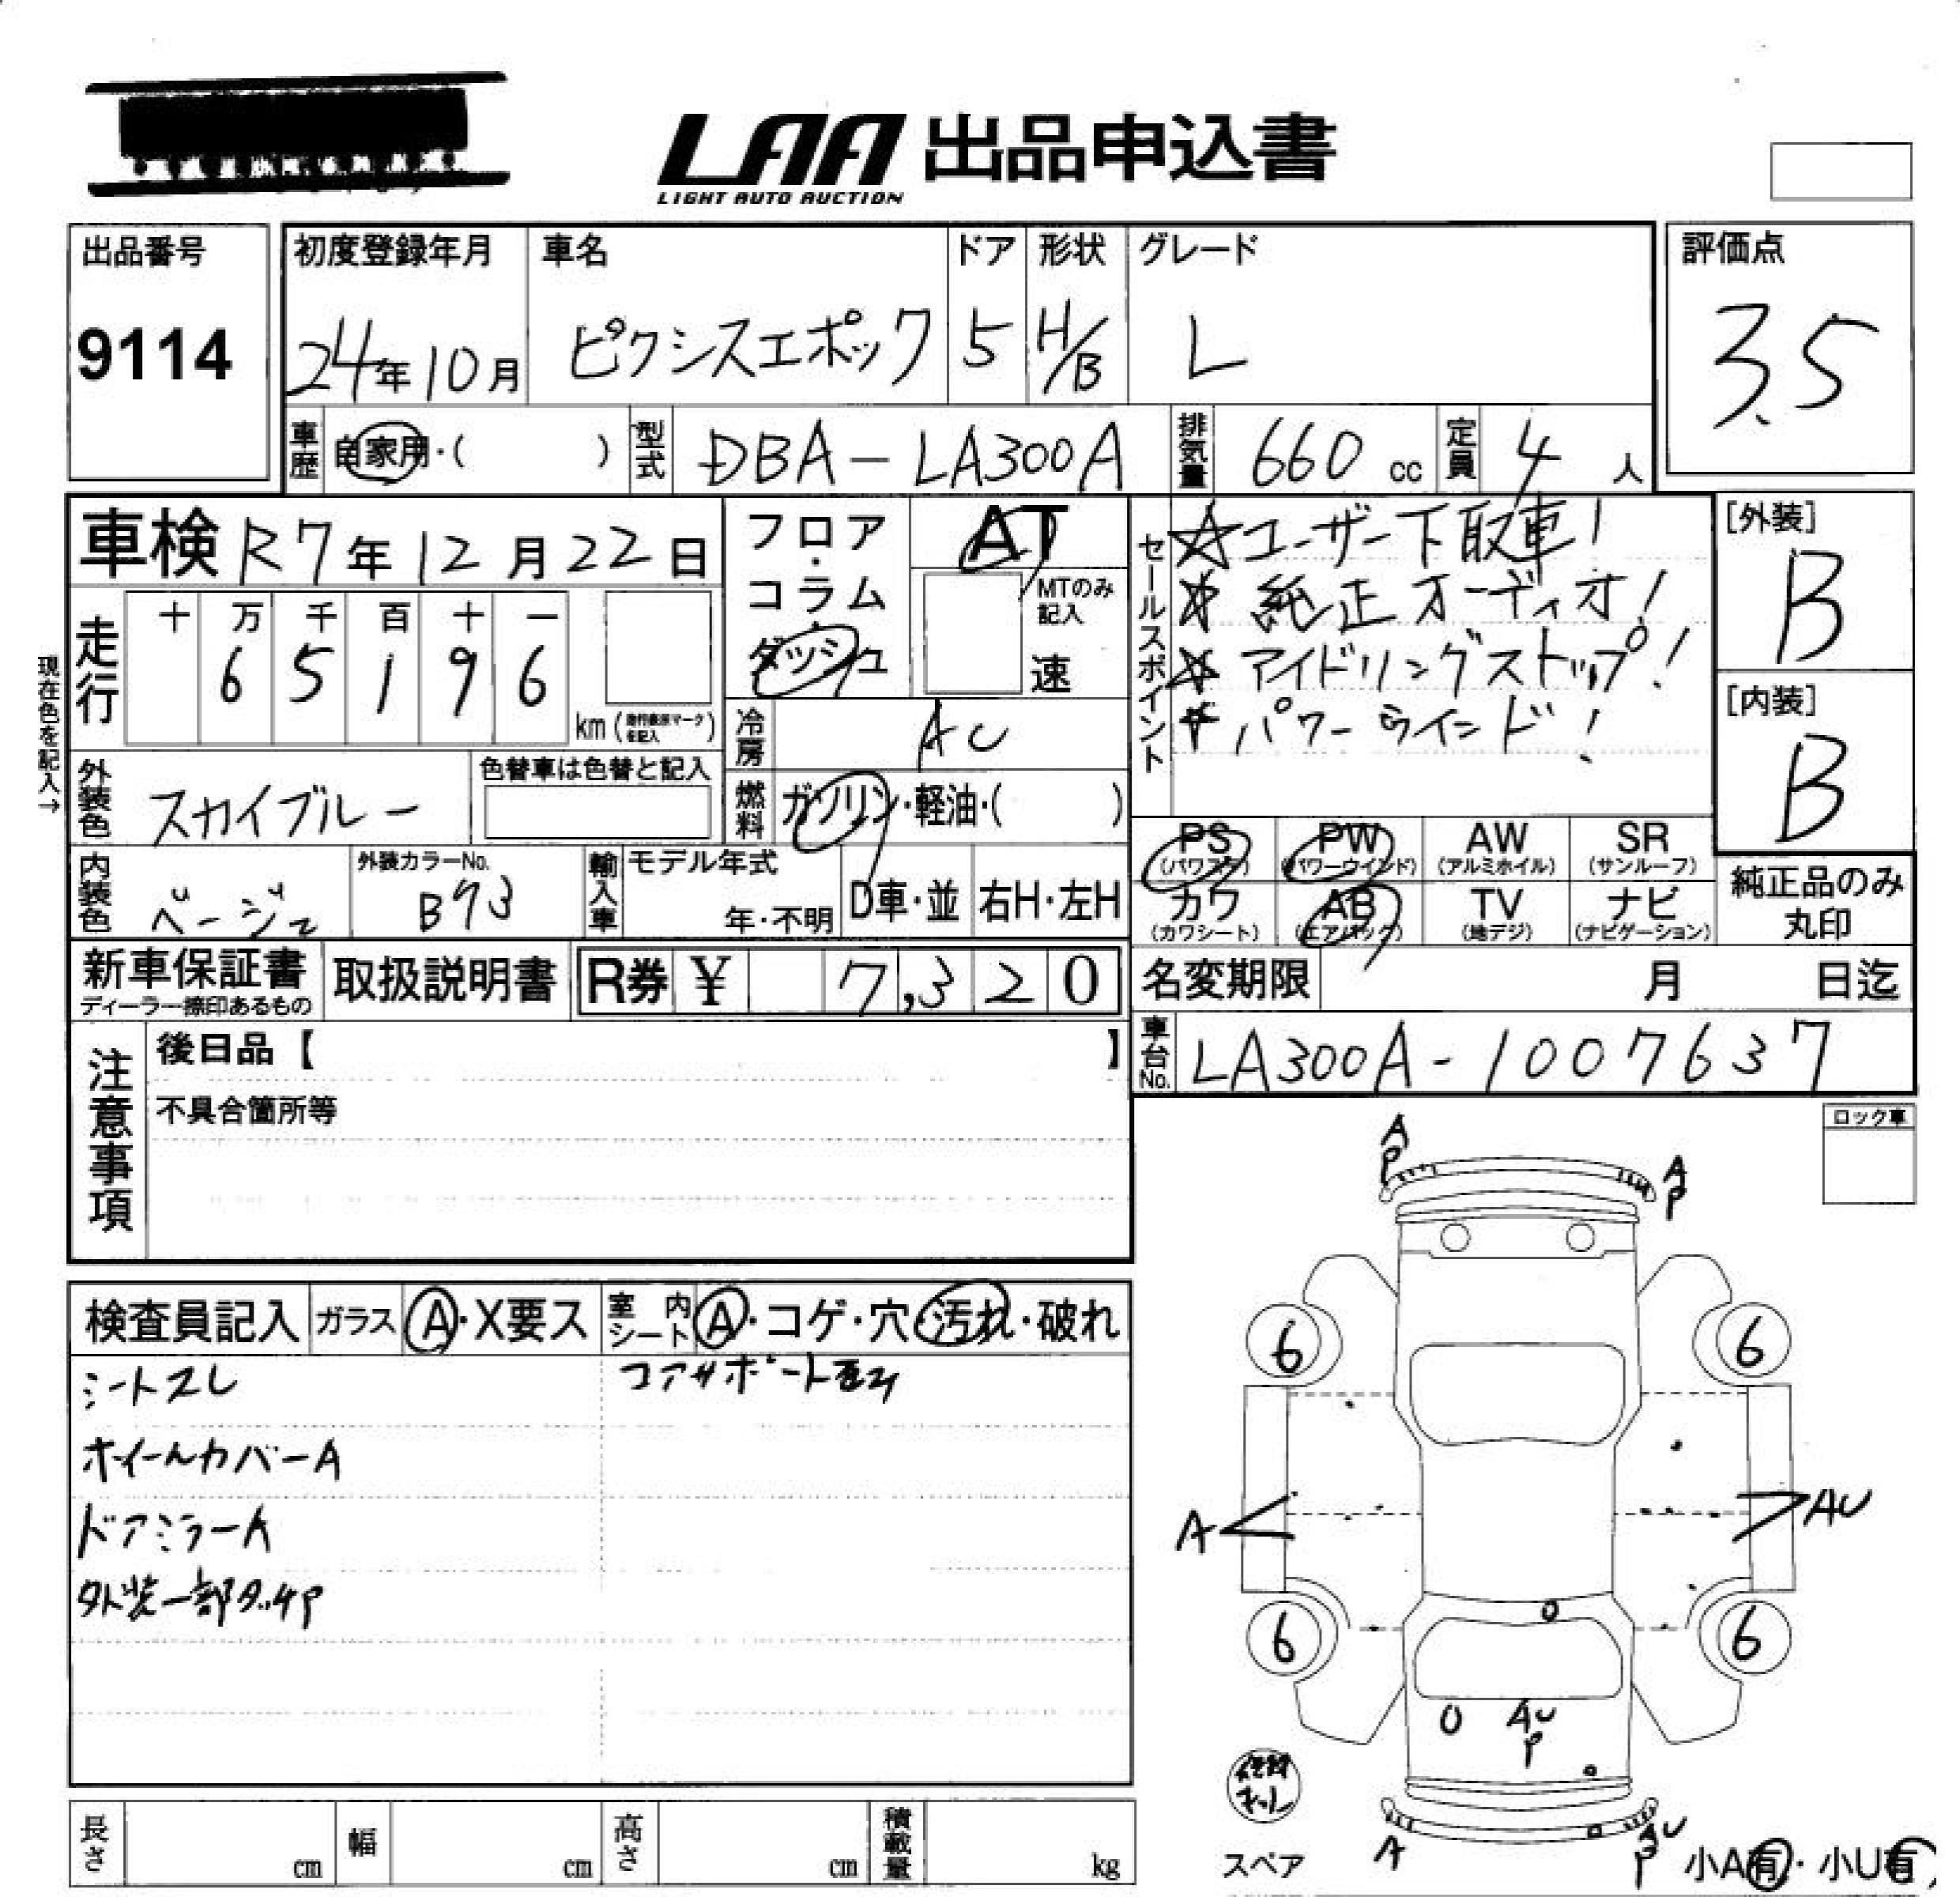 LAA 出品申込書
LIGHT AUTO AUCTION
出品番号
9114
初度登録年月 車名 ドア 形状 グレード
24年10月 ピクシスエポック 5 H/B L
評価点
3.5
車歴 自家用・( ) 型式 DBA-LA300A 排気量 660 cc 定員 4 人
車検 R7年12月22日
フロア・コラム・ダッシュ
AT
MTのみ記入
速
セールスポイント
☆ユーザー下取車!
☆純正オーディオ!
☆アイドリングストップ!
☆パワーウインド!
[外装]
B
[内装]
B
現在色を記入→
走行 十 万 千 百 十 一
6 5 1 9 6
km
冷房 AC
外装色 スカイブルー
色替車は色替と記入
燃料 ガソリン・軽油・( )
内装色 ベージュ
外装カラーNo.
B73
輸入車 モデル年式
年・不明 D車・並 右H・左H
PS (パワステ) PW (パワーウインド) AW (アルミホイル) SR (サンルーフ)
カワ (カワシート) AB (エアバック) TV (地デジ) ナビ (ナビゲーション)
純正品のみ丸印
新車保証書
ディーラー捺印あるもの
取扱説明書
R券 ¥ 7,320
名変期限 月 日迄
車台No. LA300A-1007637
注意事項
後日品【 】
不具合箇所等
ロック車
検査員記入 ガラス A・X要ス 室内シート A・コゲ・穴・汚れ・破れ
シートスレ コアサポート
ホイールカバーA
ドアミラーA
外装一部タッチP
A
P
A
P
6 6
A AU
6 6
U
AU
P
修理キット
スペア
A
AU
P
小A有・小U有
長さ cm 幅 cm 高さ cm 積載量 kg